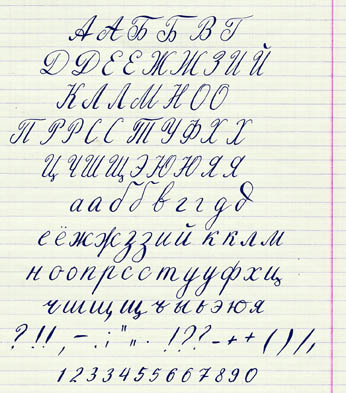 А А Б Б В Г
Д Д Е Е Ж Ж З И Й
К Л Л М Н О О
П Р Р С С Т У Ф Х Х
Ц Ч Ш Щ Э Ю Ю Я Я
а а б б в г г д д
е ё ж ж з з и й к к л м
н о о п р с с т у у ф х щ
ч ш щ щ ъ ы ь э ю я
? ! ! , – . ; " „ . ! ? ? - + + ( ) / ,
1 2 3 3 4 5 5 6 6 7 8 9 0